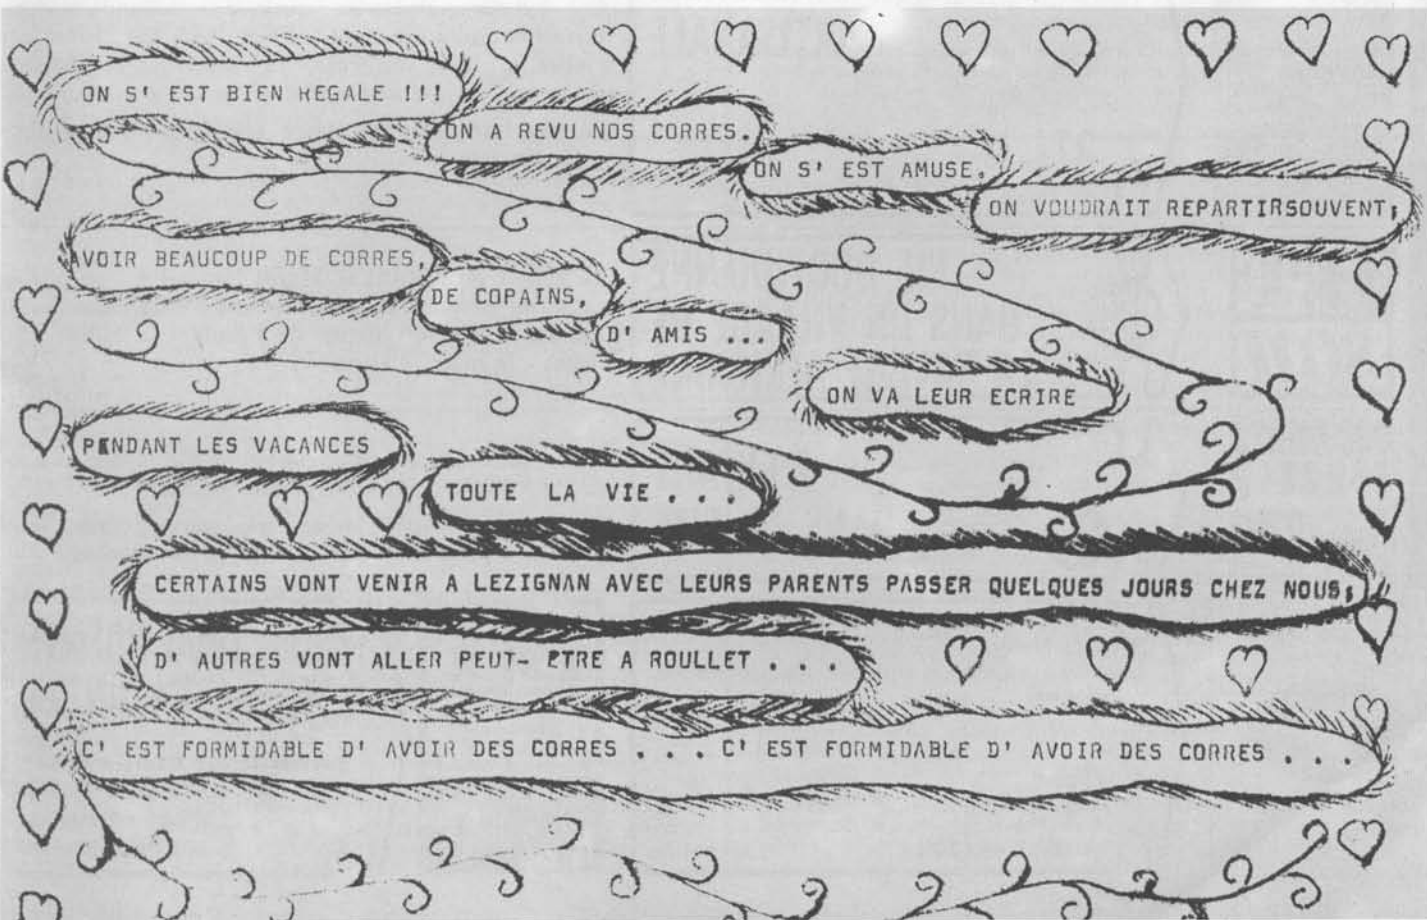 ON S' EST BIEN REGALE !!!
ON A REVU NOS CORRES.
ON S' EST AMUSE.
ON VOUDRAIT REPARTIRSOUVENT;
AVOIR BEAUCOUP DE CORRES,
DE COPAINS,
D' AMIS ...
ON VA LEUR ECRIRE
PENDANT LES VACANCES
TOUTE LA VIE . . .
CERTAINS VONT VENIR A LEZIGNAN AVEC LEURS PARENTS PASSER QUELQUES JOURS CHEZ NOUS;
D' AUTRES VONT ALLER PEUT- ETRE A ROULLET . . .
C' EST FORMIDABLE D' AVOIR DES CORRES . . . C' EST FORMIDABLE D' AVOIR DES CORRES . . .